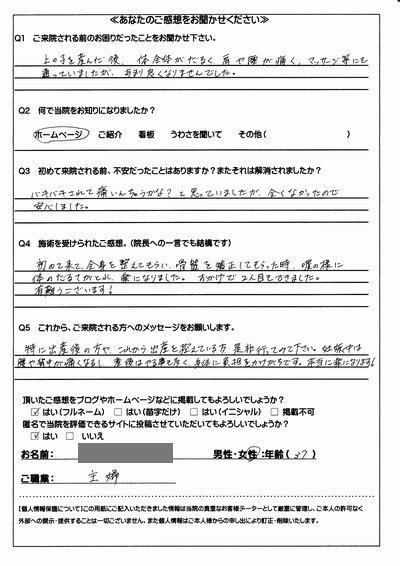 ≪あなたのご感想をお聞かせください≫
Q1 ご来院される前のお困りだったことをお聞かせ下さい。
上の子を産んだ後、体全体がだるく、肩や腰が痛く、マッサージ等にも
通っていましたが、あまり良くなりませんでした。
Q2 何で当院をお知りになりましたか？
ホームページ ご紹介 看板 うわさを聞いて その他（ ）
Q3 初めて来院される前、不安だったことはありますか？またそれは解消されましたか？
バキバキされて痛いんちゃうかな？と思っていましたが、全くなかったので
安心しました。
Q4 施術を受けられたご感想。（院長への一言でも結構です）
初めて来て、全身を整えてもらい、骨盤を矯正してもらった時、嘘の様に
体のだるさがとれ、楽になりました。おかげで2人目もできました。
有難うございます！
Q5 これから、ご来院される方へのメッセージをお願いします。
特に出産後の方や、これから出産を控えている方、是非行ってみて下さい。妊娠中は
腰や背中が痛くなるし、産後はやる事も多く、身体に負担をかけがちです。本当に楽になります！
頂いたご感想をブログやホームページなどに掲載してもよろしいでしょうか？
☑はい（フルネーム） □はい（苗字だけ） □はい（イニシャル） □掲載不可
匿名で当院を評価できるサイトに投稿させていただいてもよろしいでしょうか？
☑はい □いいえ
お名前： 男性・女性：年齢（37）
ご職業： 主婦
【個人情報保護について】この用紙にご記入いただきました情報は当院の貴重なお客様データーとして厳重に管理し、ご本人の許可なく
外部への開示・提供することは一切ございません。また個人情報はご本人様からの申し出により訂正・削除いたします。